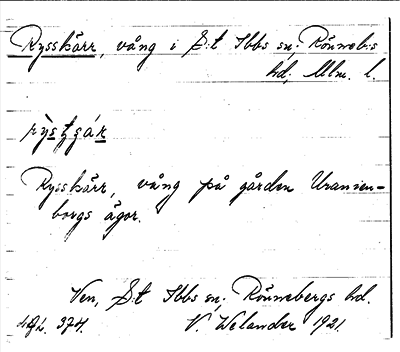 Rysskärr, vång i S:t Ibbs sn; Rönneb:s
hd, Mlm. l.
Rysskärr, vång på gården Uranien-
borgs ägor.
Ven, S:t Ibbs sn; Rönnebergs hd.
374. V. Welander 1921.